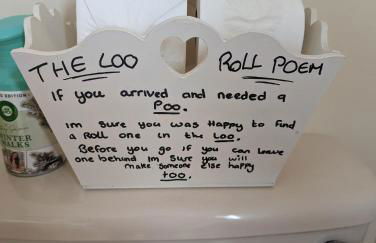 THE LOO ROLL POEM
If you arrived and needed a
Poo.
Im sure you was Happy to find
a Roll one in the Loo.
Before you go if you can leave
one behind Im sure you will
make someone else happy
too.
EDITION
AIR WICK
WINTER
WALKS